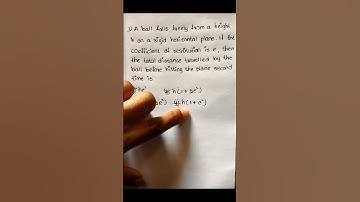 1) A ball falls freely from a height
h on a rigid horizontal plane. If the
coefficient of restitution is e, then
the total distance travelled by the
ball before hitting the plane second
time is
he² h(1+2e²)
2e²) h(1+e²)